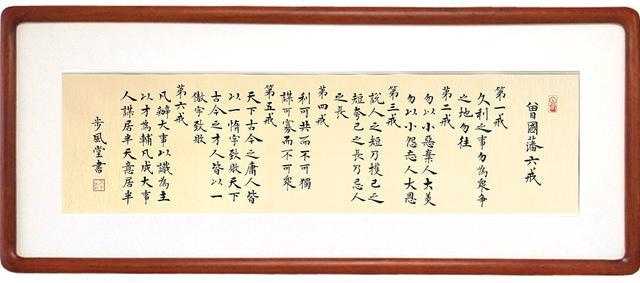 曾國藩六戒
第一戒
久利之事勿為眾爭
之地勿往
第二戒
勿以小惡棄人大美
勿以小怨忘人大恩
第三戒
說人之短乃護己之
短夸己之長乃忌人
之長
第四戒
利可共而不可獨
謀可寡而不可眾
第五戒
天下古今之庸人皆
以一惰字致敗天下
古今之才人皆以一
傲字致敗
第六戒
凡辦大事以識為主
以才為輔凡成大事
人謀居半天意居半
步風堂書